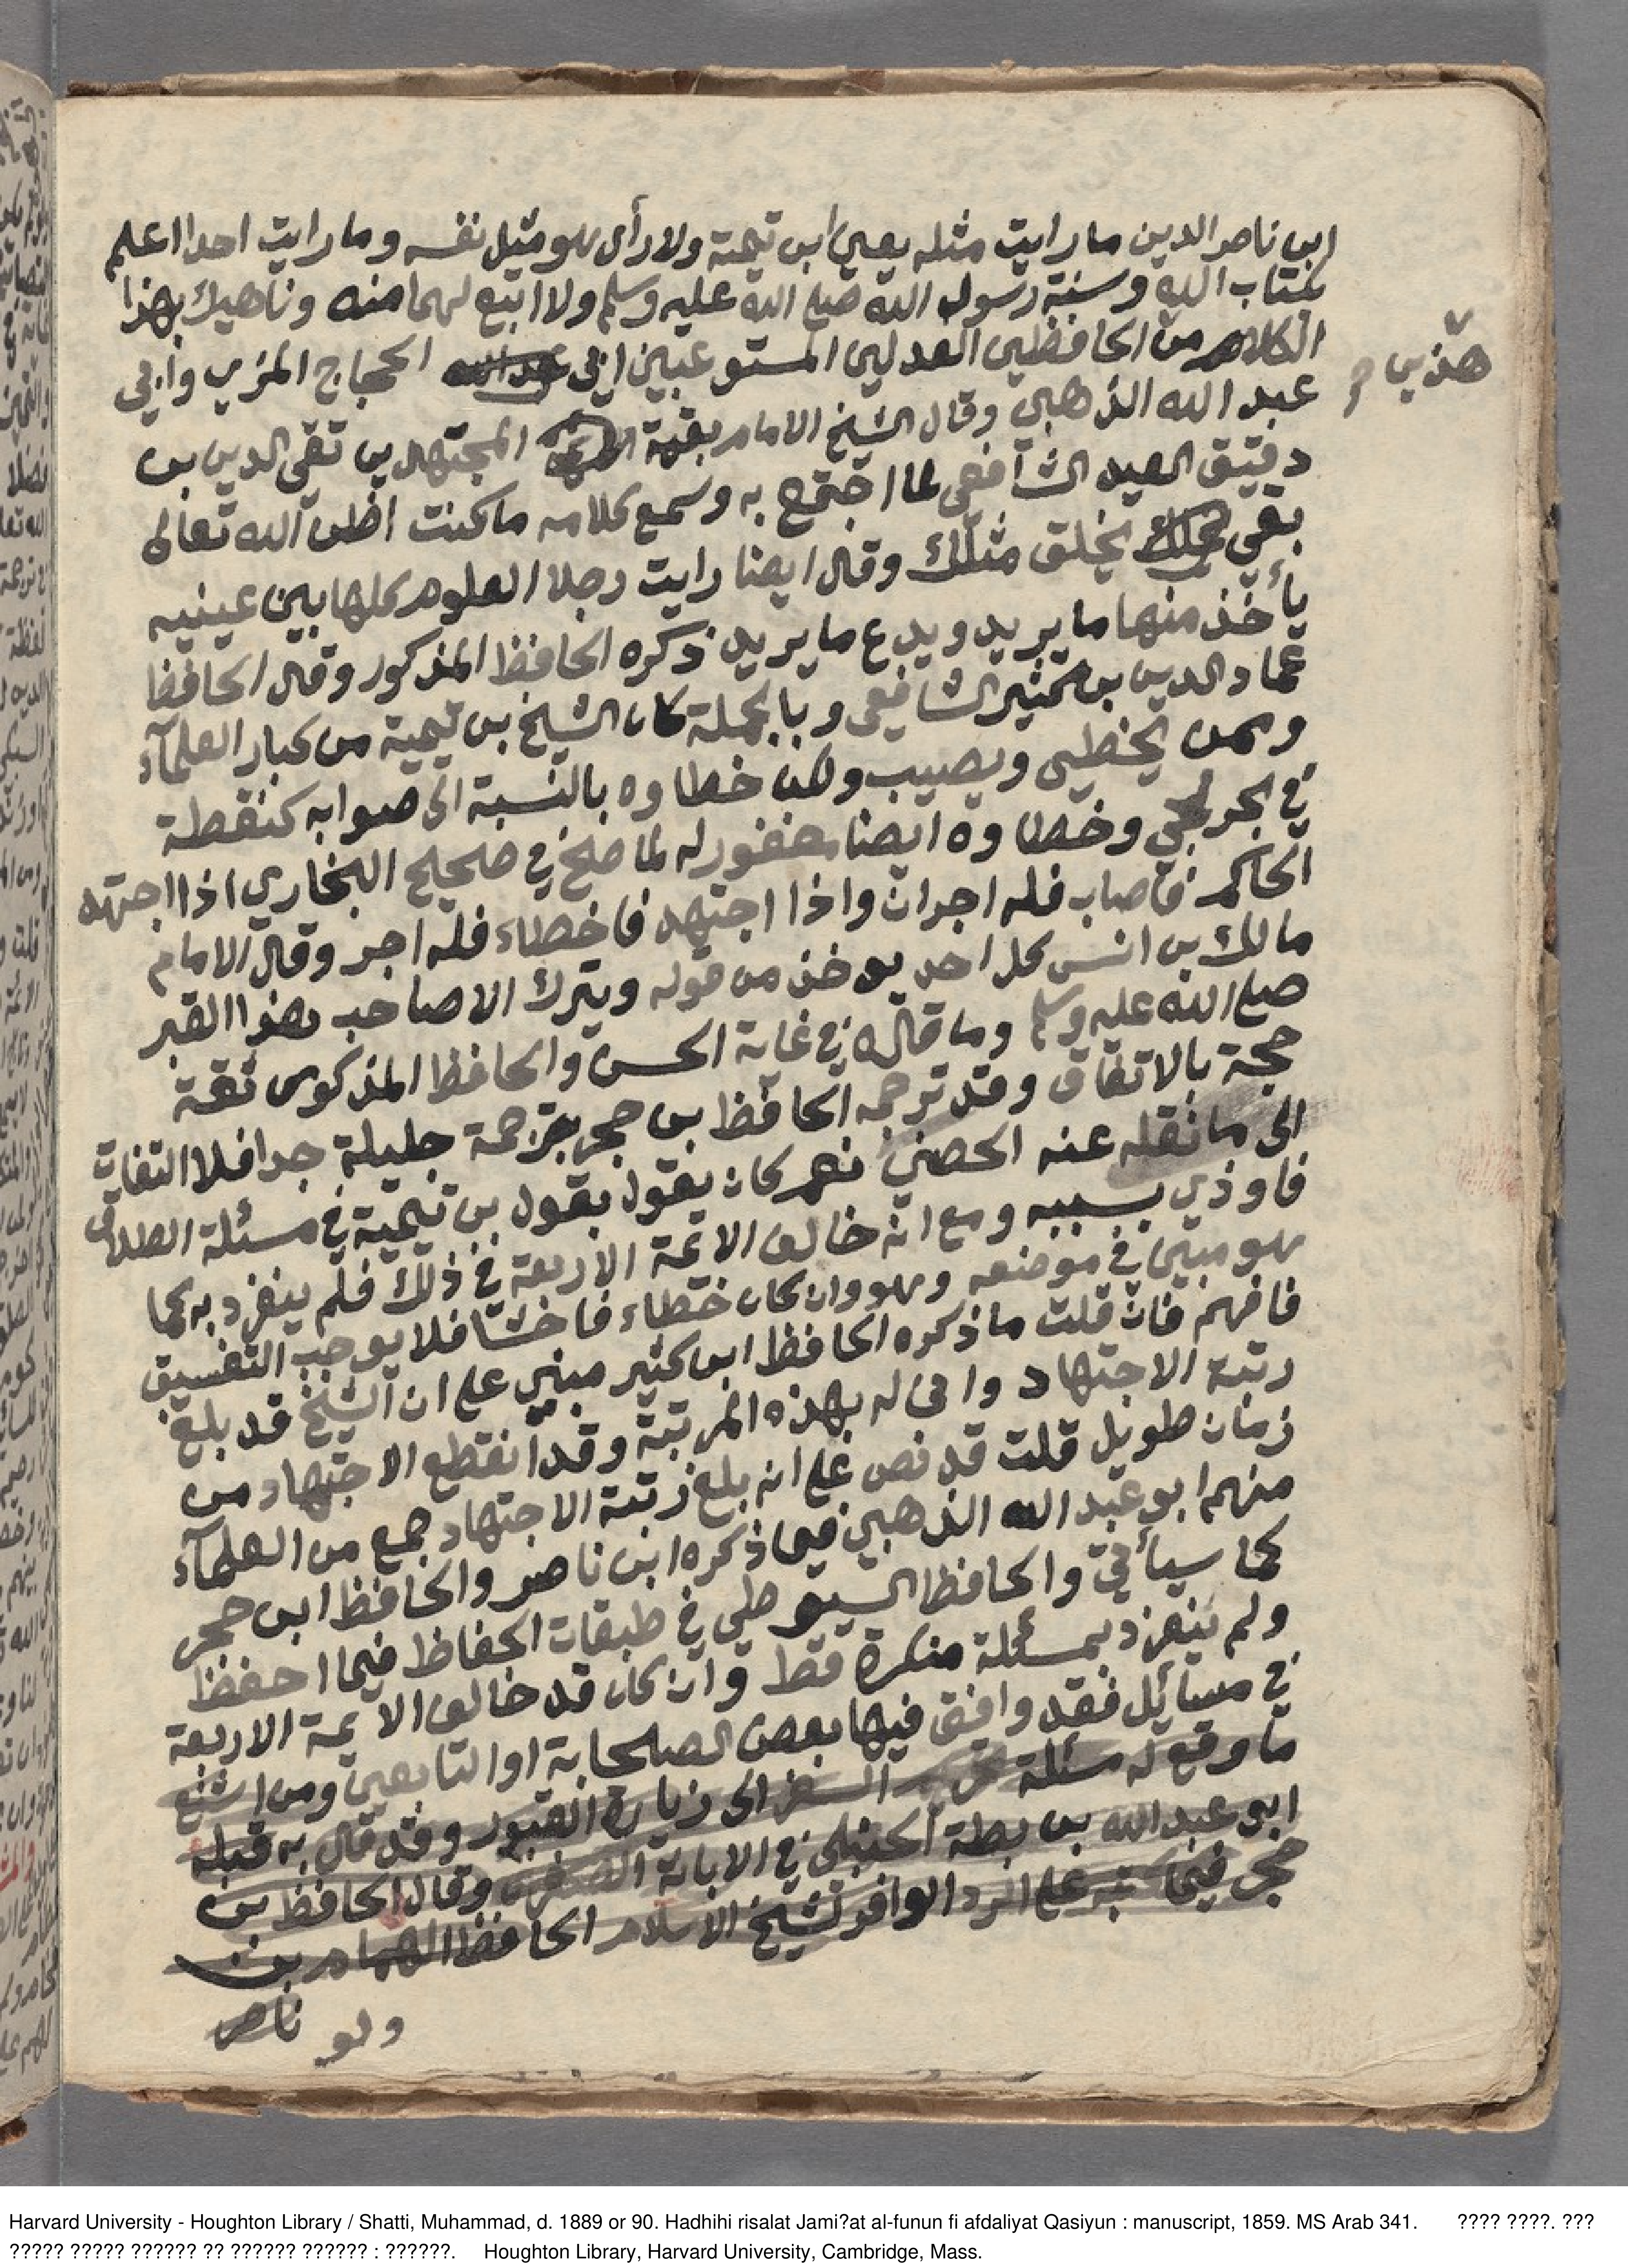 ابن ناصر الدين ما رايت مثله يعني ابن تيمية ولا رأى هو مثل نفسه وما رايت احدا اعلم
بكتاب الله وسنة رسول الله صلى الله عليه وسلم ولا اتبع لهما منه وناهيك بهذا
الكلام من الحافظين العدلين المستوعبين ابي عبد الله الحجاج المزي وابي
هذين
عبد الله الذهبي وقال الشيخ الامام بقية المجتهدين تقي الدين بن
دقيق العيد الشافعي لما اجتمع به وسمع كلامه ما كنت اظن الله تعالى
بقي يخلق مثلك وقال ايضا رايت رجلا العلوم كلها بين عينيه
يأخذ منها ما يريد ويدع ما يريد ذكره الحافظ المذكور وقال الحافظ
عماد الدين بن كثير الشافعي وبالجملة كان الشيخ بن تيمية من كبار العلمآء
وممن يخطي ويصيب ولكن خطاوه بالنسبة الى صوابه كنقطة
في بحر لجي وخطاوه ايضا مغفور له لما صح في صحيح البخاري اذا اجتهد
الحاكم فاصاب فله اجران واذا اجتهد فاخطاء فله اجر وقال الامام
مالك بن انس كل احد يوخذ من قوله ويترك الا صاحب هذا القبر
صلى الله عليه وسلم وما قاله في غاية الحسن والحافظ المذكور ثقة
حجة بالاتفاق وقد ترجمه الحافظ بن حجر بترجمة جليلة جدا فلا التفات
الى ما نقله عنه الحصني نعم كان يقول بقول بن تيمية في مسئلة الطلاق
فاوذي بسببه ومع انه خالف الائمة الاربعة في ذلك فلم ينفرد به كما
هو مبين في موضعه وهو وان كان خطاء فاحشا فلا يوجب التفسيق
فافهم فان قلت ما ذكره الحافظ ابن كثير مبني على ان الشيخ قد بلغ
رتبة الاجتهاد وانى له بهذه المرتبة وقد انقطع الاجتهاد من
زمان طويل قلت قد نص على انه بلغ رتبة الاجتهاد جمع من العلمآء
منهم ابو عبد الله الذهبي فيما ذكره ابن ناصر والحافظ ابن حجر
كما سيأتي والحافظ السيوطي في طبقات الحفاظ فيما احفظ
ولم ينفرد بمسئلة منكرة قط وان كان قد خالف الايمة الاربعة
في مسائل فقد وافق فيها بعض الصحابة او التابعين ومن اشنع
ما وقع له مسئلة السفر الى زيارة القبور وقد قال به قبله
ابو عبد الله بن بطة الحنبلي في الابانة الصغرى وقال الحافظ بن
حجر فيما كتبه على الرد الوافر لشيخ الاسلام الحافظ الهمام بن
ناصر
ولو
Harvard University - Houghton Library / Shatti, Muhammad, d. 1889 or 90. Hadhihi risalat Jami?at al-funun fi afdaliyat Qasiyun : manuscript, 1859. MS Arab 341. ???? ????. ???
????? ????? ?????? ?? ?????? ?????? : ??????. Houghton Library, Harvard University, Cambridge, Mass.